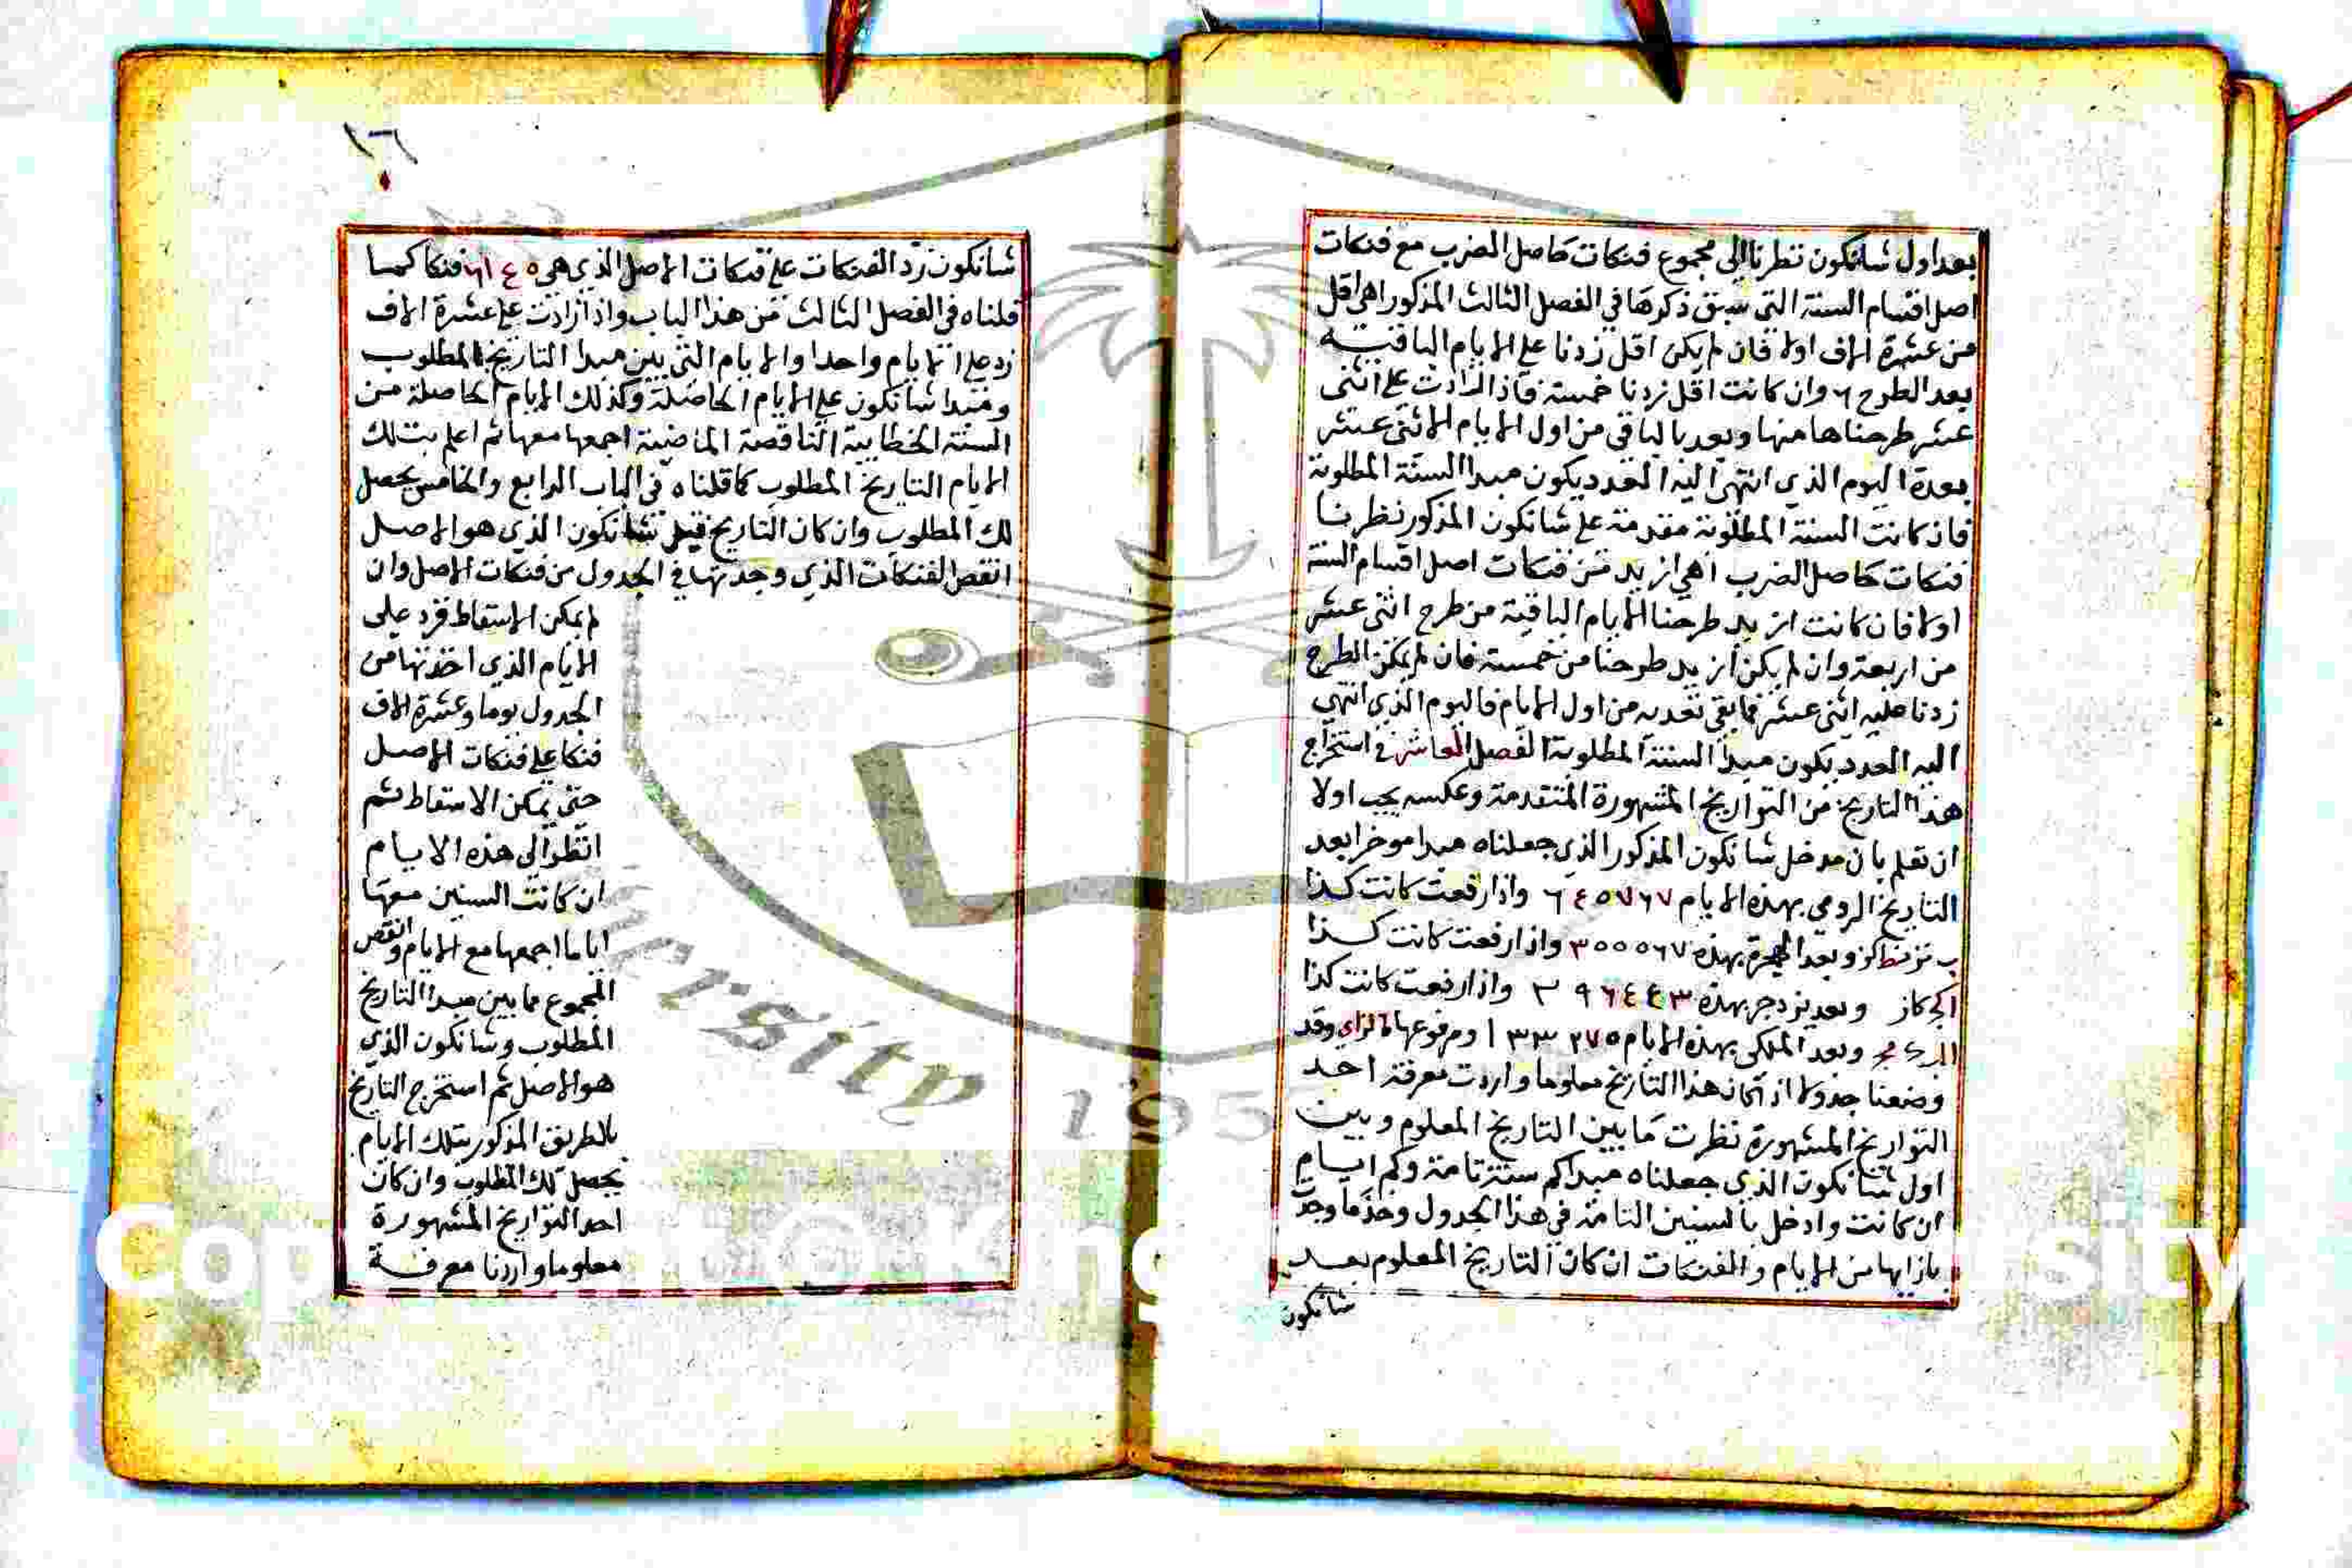 بعد اول شانكون نظرنا الى مجموع فنكات حاصل الضرب مع فنكات
اصل اقسام السنة التى سبق ذكرها في الفصل الثالث المذكور اهى اقل
من عشرة الاف اولا فان لم يكن اقل زدنا على الايام الباقية
بعد الطرح ٦ وان كانت اقل زدنا خمسة فاذا زادت على اثنى
عشر طرحناها منها ونعد بالباقي من اول الايام الاثنى عشر
بعدة اليوم الذي انتهى اليه العدد يكون مبدا السنة المطلوبة
فان كانت السنة المطلوبة مقدمة على شانكون المذكور نظرنا
فنكات حاصل الضرب اهي ازيد من فنكات اصل اقسام السنة
اولا فان كانت ازيد طرحنا الايام الباقية من طرح اثنى عشر
من اربعة وان لم يكن ازيد طرحنا من خمسة فان لم يمكن الطرح
زدنا عليه اثنى عشر فما بقي نعد به من اول الايام فاليوم الذي انتهى
اليه العدد يكون مبدا السنة المطلوبة الفصل العاشر في استخراج
هذا التاريخ من التواريخ المشهورة المتقدمة وعكسه يجب اولا
ان تعلم بان مدخل شانكون المذكور الذي جعلناه مبدا موخرا بعد
التاريخ الرومي بهذه الايام ٦٤٥٧٦٧ واذا رفعت كانت كذا
وبعد الهجرة بهذه ٣٥٥٥٦٧ واذا رفعت كانت كذا
وبعد يزدجر بهذه ٣٩٦٤٤٣ واذا رفعت كانت كذا
وبعد الملكى بهذه الايام ١٣٣٢٧٥ ومرفوعها وقد
وضعنا جدولا اذا كان هذا التاريخ معلوما واردت معرفة احد
التواريخ المشهورة نظرت ما بين التاريخ المعلوم وبين
اول شانكون الذي جعلناه مبدا كم سنة تامة وكم ايام
ان كانت وادخل بالسنين التامة في هذا الجدول وخذ ما وجدت
بازايها من الايام والفنكات ان كان التاريخ المعلوم بعد
شانكون
١٦
شانكون زد الفنكات على فنكات الاصل الذي هي فنكا كما
قلناه في الفصل الثالث من هذا الباب واذا زادت على عشرة الاف
زد على الايام واحدا والايام التى بين مبدا التاريخ المطلوب
ومبدا شانكون على الايام الحاصلة وكذلك الايام الحاصلة من
السنة الخطايية الناقصة الماضية اجمعها معها ثم اعلم بتلك
الايام التاريخ المطلوب كما قلناه في الباب الرابع والخامس يحصل
لك المطلوب وان كان التاريخ قبل شانكون الذي هو الاصل
انقص الفنكات الذي وجدتها في الجدول من فنكات الاصل وان
لم يمكن الاسقاط فزد على
الايام الذي اخذتها من
الجدول يوما وعشرة الاف
فنكا على فنكات الاصل
حتى يمكن الاسقاط ثم
انظر الى هذه الايام
ان كانت السنين معها
اياما اجمعها مع الايام وانقص
المجموع مما بين مبدا التاريخ
المطلوب وشانكون الذي
هو الاصل ثم استخرج التاريخ
بالطريق المذكور بتلك الايام
يحصل لك المطلوب وان كان
احد التواريخ المشهورة
معلوما واردنا معرفة